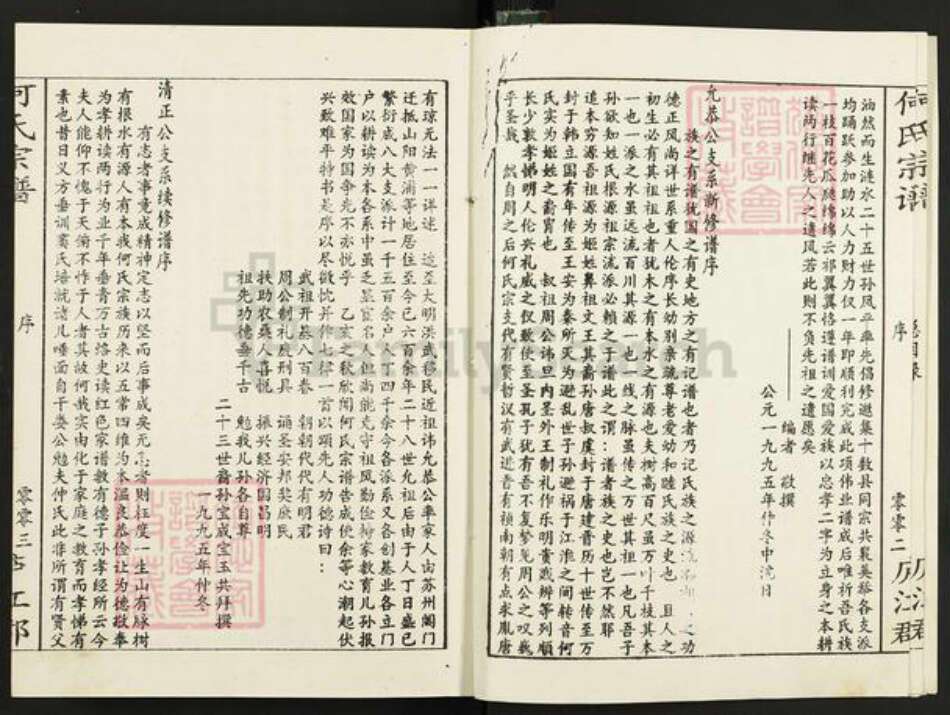 何氏宗谱
总目录
序
零零二
庐江郡
油然而生涟水二十五世孙凤平率先倡修邀集十数县同宗共襄义举各支派
均踊跃参加助以人力财力仅一年即顺利完成此项伟业谱成后唯祈吾氏族
一枝百花瓜瓞绵绵云祁翼翼恪遵谱训爱国爱族以忠孝二字为立身之本耕
读两行继先人之遗风若此则不负先祖之遗愿矣
编者 敬撰
公元一九九五年仲冬中浣日
允恭公支系新修谱序
族之有谱犹国之有史地方之有记谱也者乃记氏族之源流 之功
德正风尚详世系重人伦序长幼别亲疏尊老爱幼和睦氏族之史也且人之
初生必有其祖也者犹木之有本水之有源也夫树高百尺虽万叶千枝其本
一也一派之水虽远流百川其源一也一线之脉虽传之万世其祖一也凡吾子
孙欲知姓氏根源祖宗流派必赖之于谱此之谓谱者族之史也岂不然耶
追本穷源吾祖源为姬姓鼻祖文王其裔孙唐叔虞封于唐建晋历十世传至万
封于韩立国有年传至王安为秦所灭为避乱世子孙避祸于江淮之间转音何
氏实为姬姓之裔胄也 叔祖周公讳旦内圣外王制礼作乐明贵贱辨等列顺
长少敦孝悌明人伦兴礼威之仪教使至圣孔子犹有吾不复梦见周公之叹巍
乎圣哉 然自周之后何氏宗支代有贤哲汉有武进晋有祯南朝有点求胤唐
有琼元法一一详述 迨至大明洪武移民近祖讳允恭公率家人由苏州阊门
迁抵山阳黄浦等地居住至今已六百余年二十八世允祖后由于人丁日盛已
繁衍成八大支派计一千五百余户人丁四千余今各派系又各创基业各立门
户以耕读为本各系中虽乏显宦名人但尚能克守祖风勤俭持家教育儿孙报
效国家为国争先不亦悦乎 乙亥之秋欣闻何氏宗谱告成使余等心潮起伏
兴致难平特书是序以尽微忱并作七律一首以颂先人功德诗曰：
武祖开基八百春 朝朝代代有明君
周公制礼废刑具 诵圣安邦奖庶民
扶助农桑人喜悦 振兴经济国昌明
祖先功德垂千古 勉我儿孙各自尊
二十三世裔孙宝成宝玉共拜撰
一九九五年仲冬
清正公支系续修谱序
有志者事竟成精神定志以坚而后事成矣无志者则枉度一生山有脉树
有根水有源人有本我何氏宗族历来以五常四维为本温良恭俭让为德敬奉
为孝耕读两行为业千年垂青万古络史读红色家谱教有德子孙孝经所云今
夫人能仰不愧于天俯不怍于人者其故何哉实由化于家庭之教育而孝悌有
素也昔日义方垂训窦氏培就诸儿唾面自干娄公勉夫仲氏此非所谓有贤父
何氏宗谱
序
零零三
庐江郡